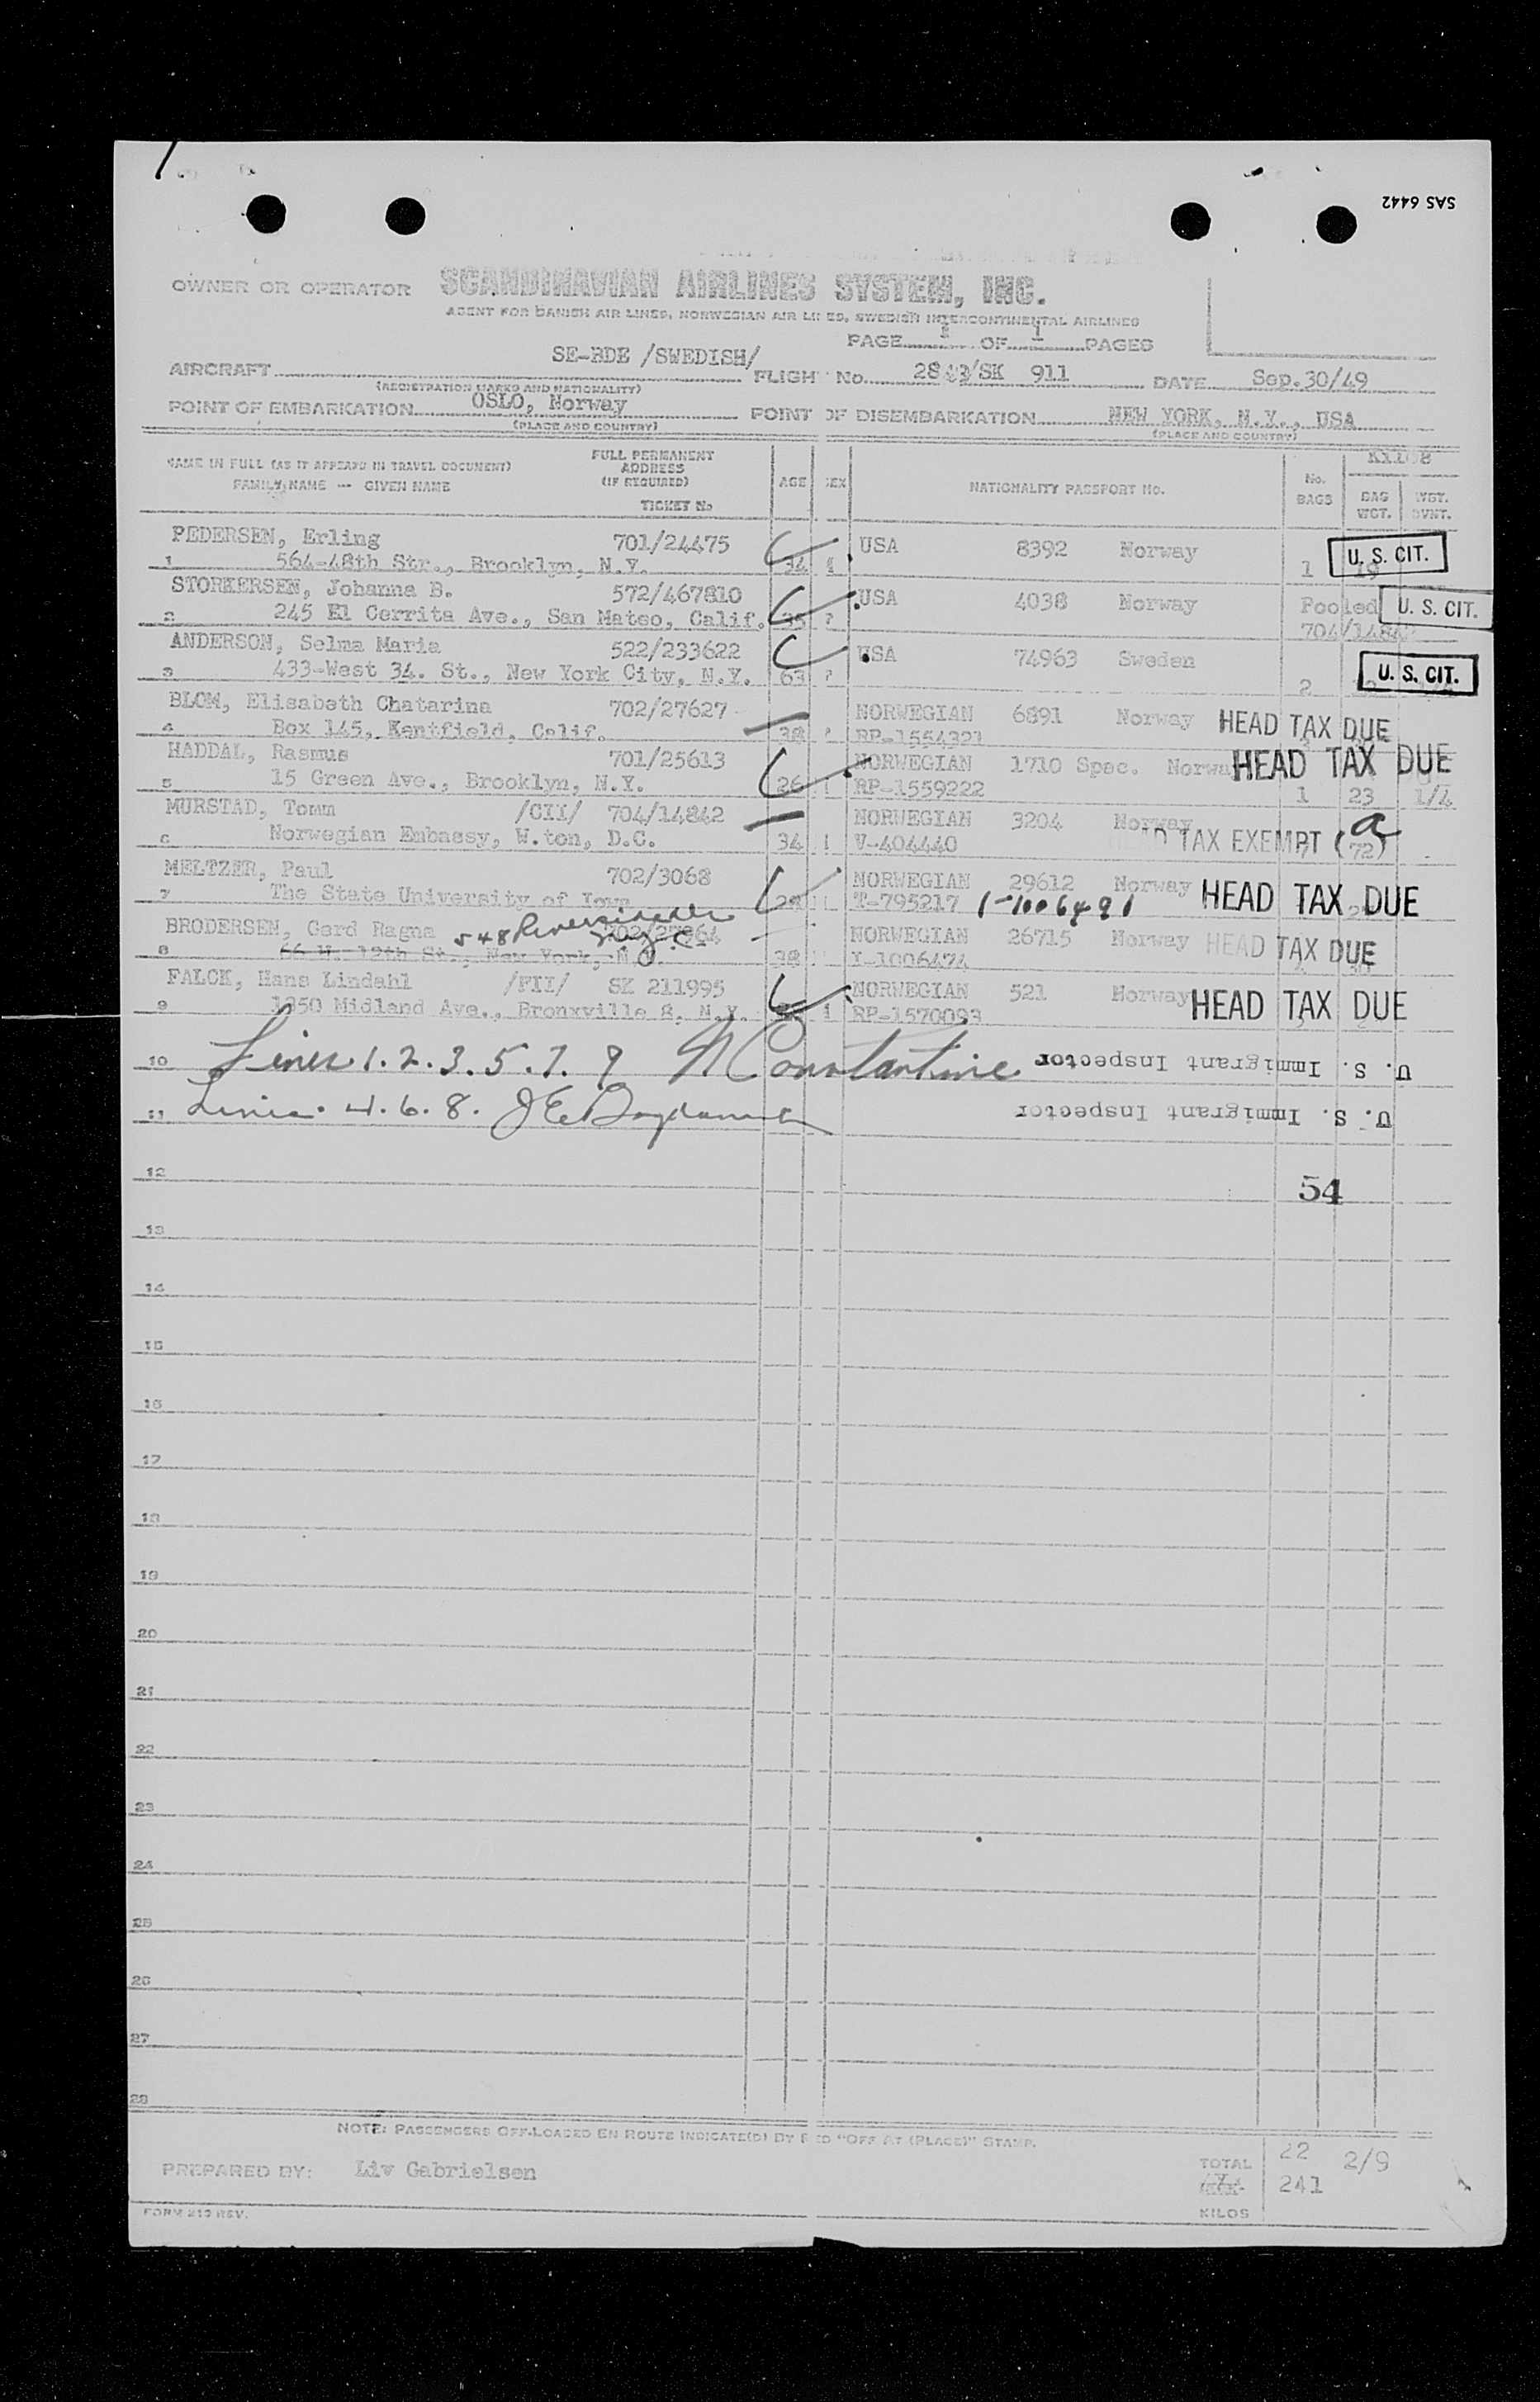 SAS 6442
OWNER OR OPERATOR SCANDINAVIAN AIRLINES SYSTEM, INC.
AGENT FOR DANISH AIR LINES, NORWEGIAN AIR LINES, SWEDISH INTERCONTINENTAL AIRLINES
PAGE 1 OF 1 PAGES
AIRCRAFT SE-BDE /SWEDISH/ FLIGHT No. /SK 911 DATE Sep.30/49
(REGISTRATION MARKS AND NATIONALITY)
POINT OF EMBARKATION OSLO, Norway POINT OF DISEMBARKATION NEW YORK, N.Y., USA
(PLACE AND COUNTRY) (PLACE AND COUNTRY)
NAME IN FULL (AS IT APPEARS IN TRAVEL DOCUMENT) FULL PERMANENT ADDRESS (IF REQUIRED) AGE SEX NATIONALITY PASSPORT No. No. BAGS BAG WGT.
FAMILY NAME — GIVEN NAME
TICKET No
PEDERSEN, Erling 701/24475 USA 8392 Norway
1 564-48th Str., Brooklyn, N.Y. 34 1 U. S. CIT.
STORKERSEN, Johanna B. 572/467810 USA 4038 Norway Pooled U. S. CIT.
2 245 El Cerrita Ave., San Mateo, Calif. 704/14842
ANDERSON, Selma Maria 522/233622 USA 74963 Sweden
3 433-West 34. St., New York City, N.Y. 63 2 U. S. CIT.
BLOM, Elisabeth Chatarina 702/27627 NORWEGIAN 6891 Norway HEAD TAX DUE
4 Box 145, Kentfield, Calif. 38 RP-1554321
HADDAL, Rasmus 701/25613 NORWEGIAN 1710 Spec. Norway HEAD TAX DUE
5 15 Green Ave., Brooklyn, N.Y. 26 RP-1559222 1 23 1/4
MURSTAD, Tomm /CII/ 704/14842 NORWEGIAN 3204 Norway
6 Norwegian Embassy, W.ton, D.C. 34 V-404440 HEAD TAX EXEMPT (a) 72
MELTZER, Paul 702/3068 NORWEGIAN 29612 Norway HEAD TAX DUE
7 The State University of Iowa T-795217 1-1006491
BRODERSEN, Gerd Ragna 548 NORWEGIAN 26715 Norway HEAD TAX DUE
8 66 W. 12th St., New York, N.Y. 38 I-1006474
FALCK, Hans Lindahl /FII/ SK 211995 NORWEGIAN 521 Norway HEAD TAX DUE
9 1350 Midland Ave., Bronxville 8, N.Y. RP-1570093
10 Lines 1.2.3.5.7.9 Constantine U. S. Immigrant Inspector
11 Lines. 4.6.8. U. S. Immigrant Inspector
12
54
13
14
15
16
17
18
19
20
21
22
23
24
25
26
27
28
NOTE: PASSENGERS OFF-LOADED EN ROUTE INDICATE(D) BY RED "OFF AT (PLACE)" STAMP.
PREPARED BY: Liv Gabrielsen TOTAL 22 2/9
241
KILOS
FORM 213 REV.